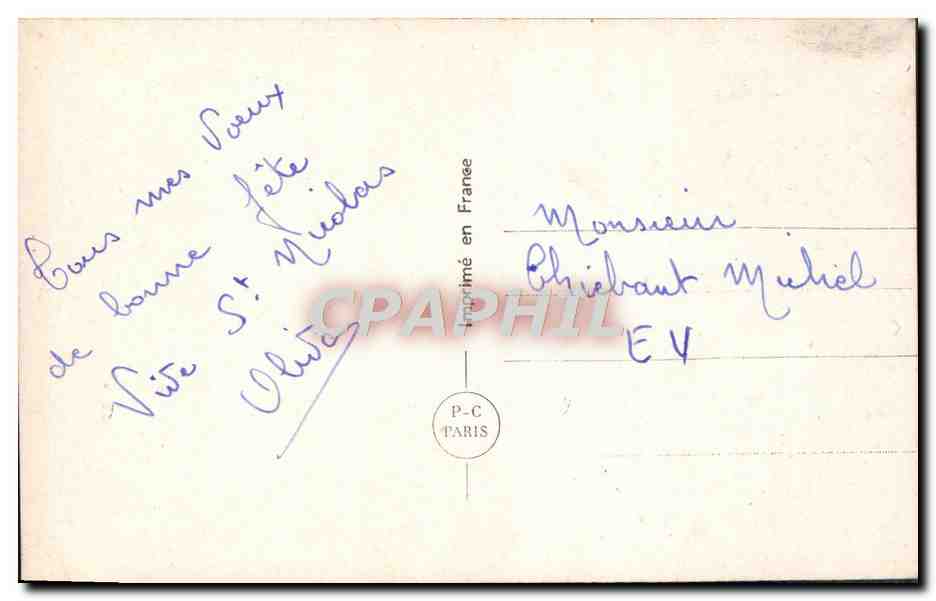 Tous mes Voeux
de bonne fête
Vive St Nicolas
Olive
CPAPHIL
Imprimé en France
P-C
PARIS
Monsieur
Thiebaut Michel
EV